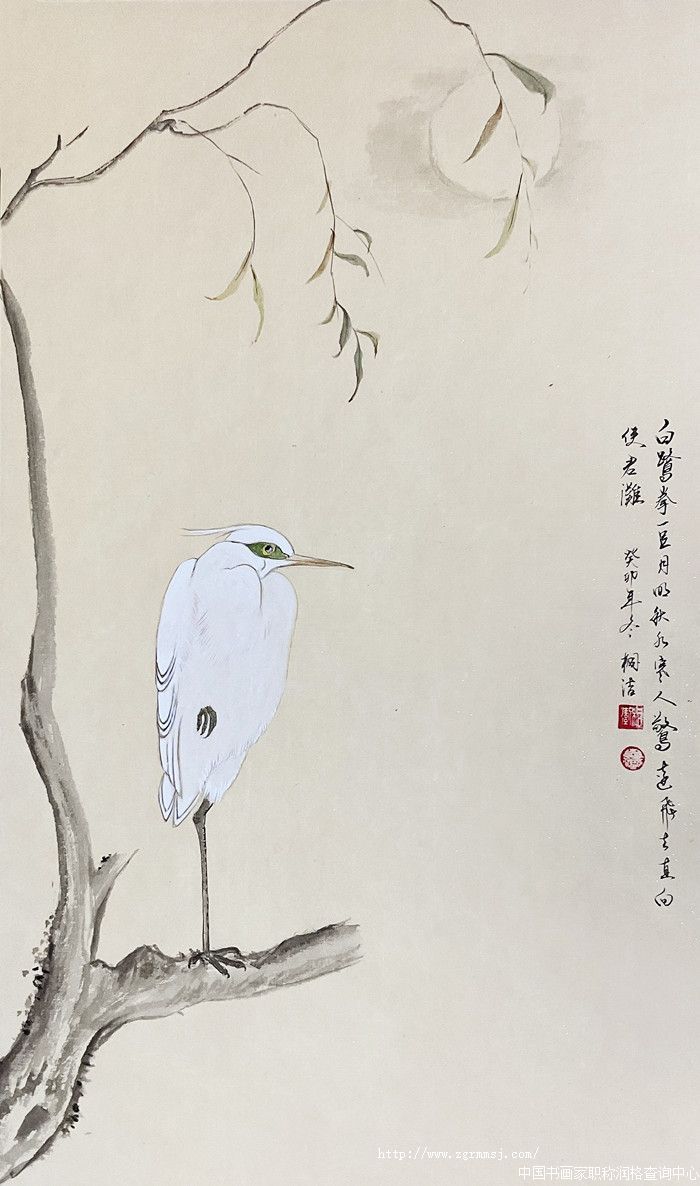 白鷺拳一足月明秋水寒人驚遠飛去直向
使君灘 癸卯年冬 桐洁
http://www.zgrmmsj.com/
中国书画家职称润格查询中心